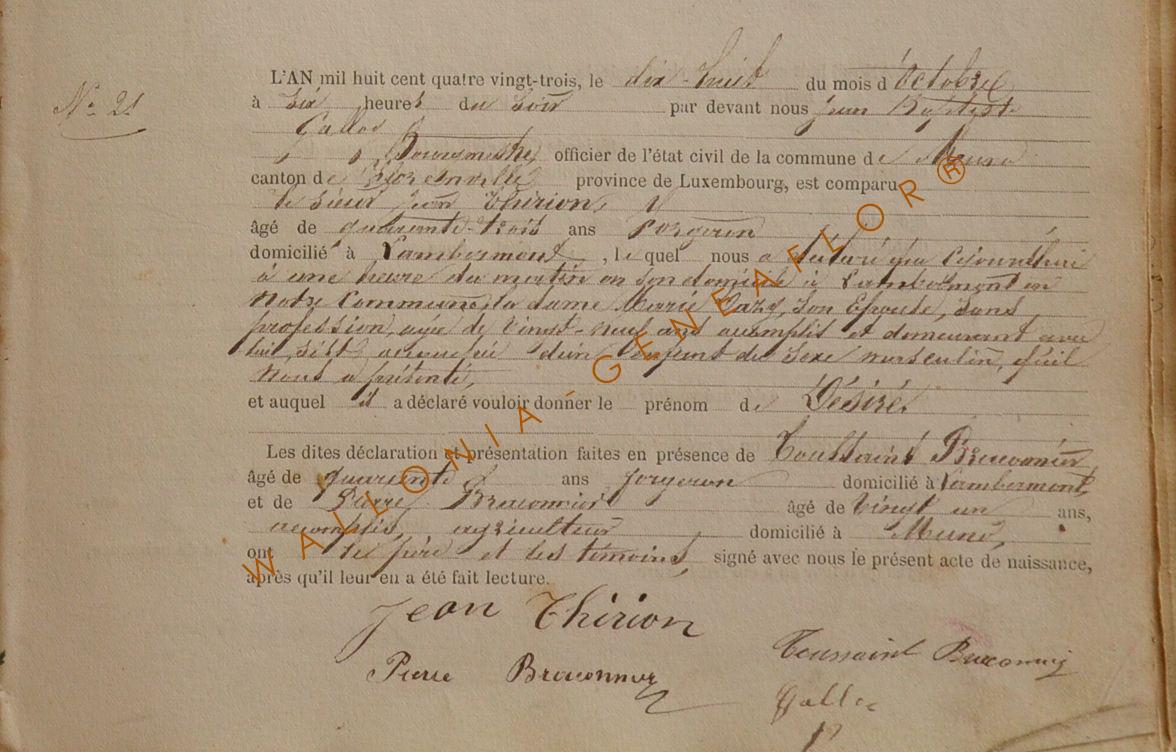 Nº 21
L'AN mil huit cent quatre vingt-trois, le dix-huit du mois d'Octobre
à Six heures du Soir par devant nous Jean Baptiste
Gallos
Bourgmestre officier de l'état civil de la commune de Muno
canton de Florenville province de Luxembourg, est comparu
le Sieur Jean Thirion,
âgé de quarante-trois ans Forgeron
domicilié à Lambermont, lequel nous a déclaré que Cejourd'hui
à une heure du matin en son domicile à Lambermont en
Notre Commune, la dame Marie Son Epouse, Sans
profession, agée de Vingt-neuf ans accomplis et demeurant avec
lui, S'est accouchée d'un Enfant du Sexe masculin, qu'il
Nous a présenté,
et auquel il a déclaré vouloir donner le prénom de Désiré.
Les dites déclaration et présentation faites en présence de Toussaint Braconnier
âgé de quarante ans forgeron domicilié à Lambermont,
et de Pierre Braconnier âgé de Vingt un ans,
accomplis, agriculteur domicilié à Muno,
ont les père et les témoins, signé avec nous le présent acte de naissance,
après qu'il leur en a été fait lecture.
Jean Thirion
Toussaint Braconnier
Pierre Braconnier
WALLONIA - GENEAFLOR®